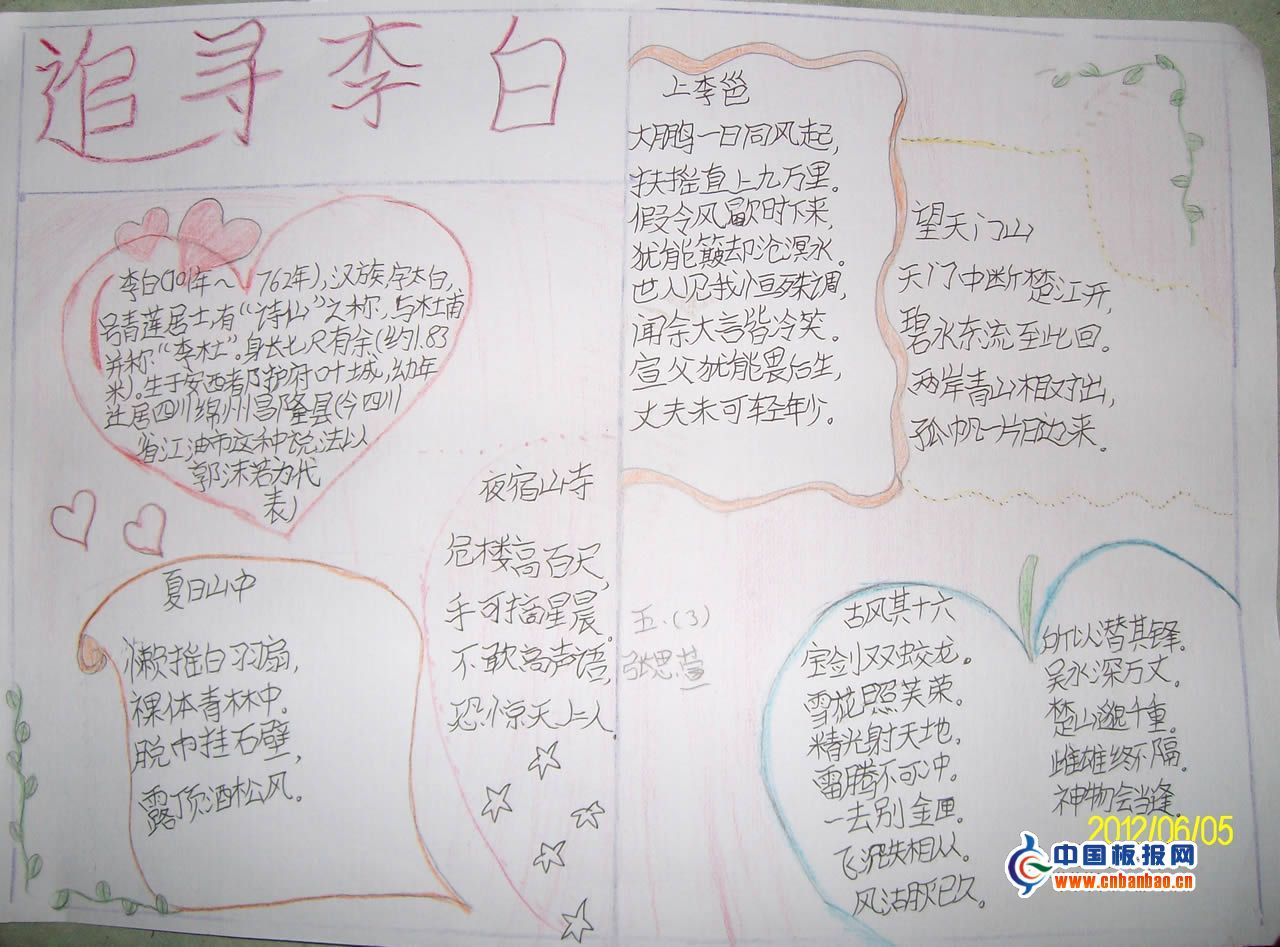 追寻李白
李白(701年～762年),汉族,字太白,
号青莲居士,有“诗仙”之称,与杜甫
并称“李杜”。身长七尺有余(约1.83
米)。生于安西都护府叶城,幼年
迁居四川绵州昌隆县(今四川
省江油市这种说法以
郭沫若为代
表)
夏日山中
懒摇白羽扇,
裸体青林中。
脱巾挂石壁,
露顶洒松风。
夜宿山寺
危楼高百尺,
手可摘星晨。
不敢高声语,
恐惊天上人.
上李邕
大鹏一日同风起,
扶摇直上九万里。
假令风歇时下来,
犹能簸却沧溟水。
世人见我恒殊调,
闻余大言皆冷笑。
宣父犹能畏后生,
丈夫未可轻年少。
望天门山
天门中断楚江开,
碧水东流至此回。
两岸青山相对出,
孤帆一片日边来。
五.(3)
张思萱
古风其十六
宝剑双蛟龙。
雪花照芙荣。
精光射天地.
雷腾不可冲。
一去别金匣。
飞沉失相从。
风沽脵已久。
所以潜其锋。
吴水深万丈。
楚山邈千重。
雌雄终不隔。
神物会当逢。
2012/06/05
中国板报网
www.cnbanbao.cn